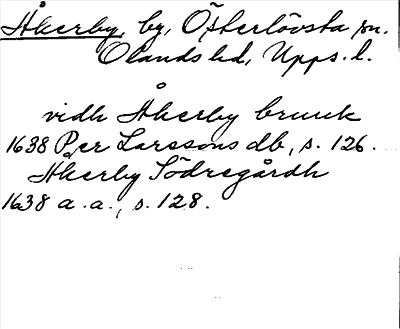 Åkerby, by, Österlövsta sn.
Olands hd, Upps. l.
vidh Åkerby bruuk
1638 Per Larssons db, s. 126.
Åkerby Södregårdh
1638 a. a., s. 128.